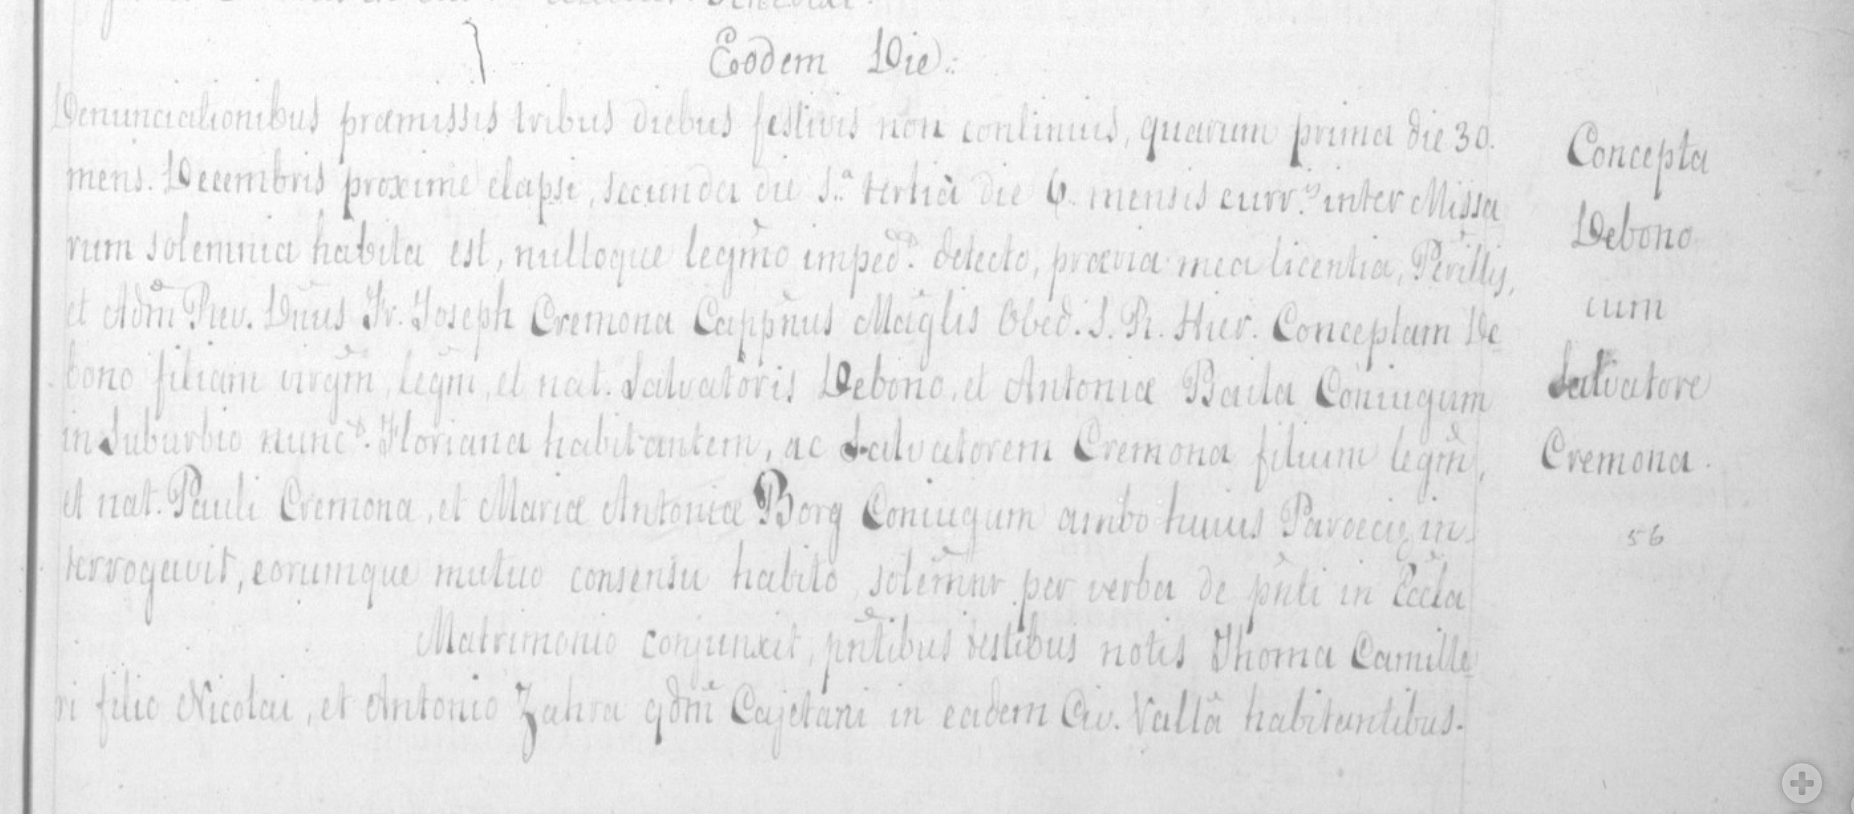 Eodem Die.:
Denunciationibus præmissis tribus diebus festivis non continuis, quarum prima die 30.
mens. Decembris proxime elapsi, secunda die 1.ª tertia die 6. mensis curr.is inter Missa
rum solemnia habita est, nulloque legmo imped.º detecto, prævia mea licentia, Perillis,
et Adm Rev. Dnus Fr. Joseph Cremona Cappnus Maglis Obed. S. R. Hier. Conceptam De
bono filiam virgm, legm, et nat. Salvatoris Debono, et Antoniæ Baila Coniugum
in Suburbio nunc. Floriana habitantem, ac Salvatorem Cremona filium legm,
et nat. Pauli Cremona, et Mariæ Antoniæ Borg Coniugum ambo huius Paroeciæ, in-
terrogavit, eorumque mutuo consensu habito, solemnr per verba de pnti in Eccla
Matrimonio conjunxit, pntibus testibus notis Thoma Camille
ri filio Nicolai, et Antonio Zahra qdm Cajetani in eadem Civ. Vallâ habitantibus.
Concepta
Debono
cum
Salvatore
Cremona.
56